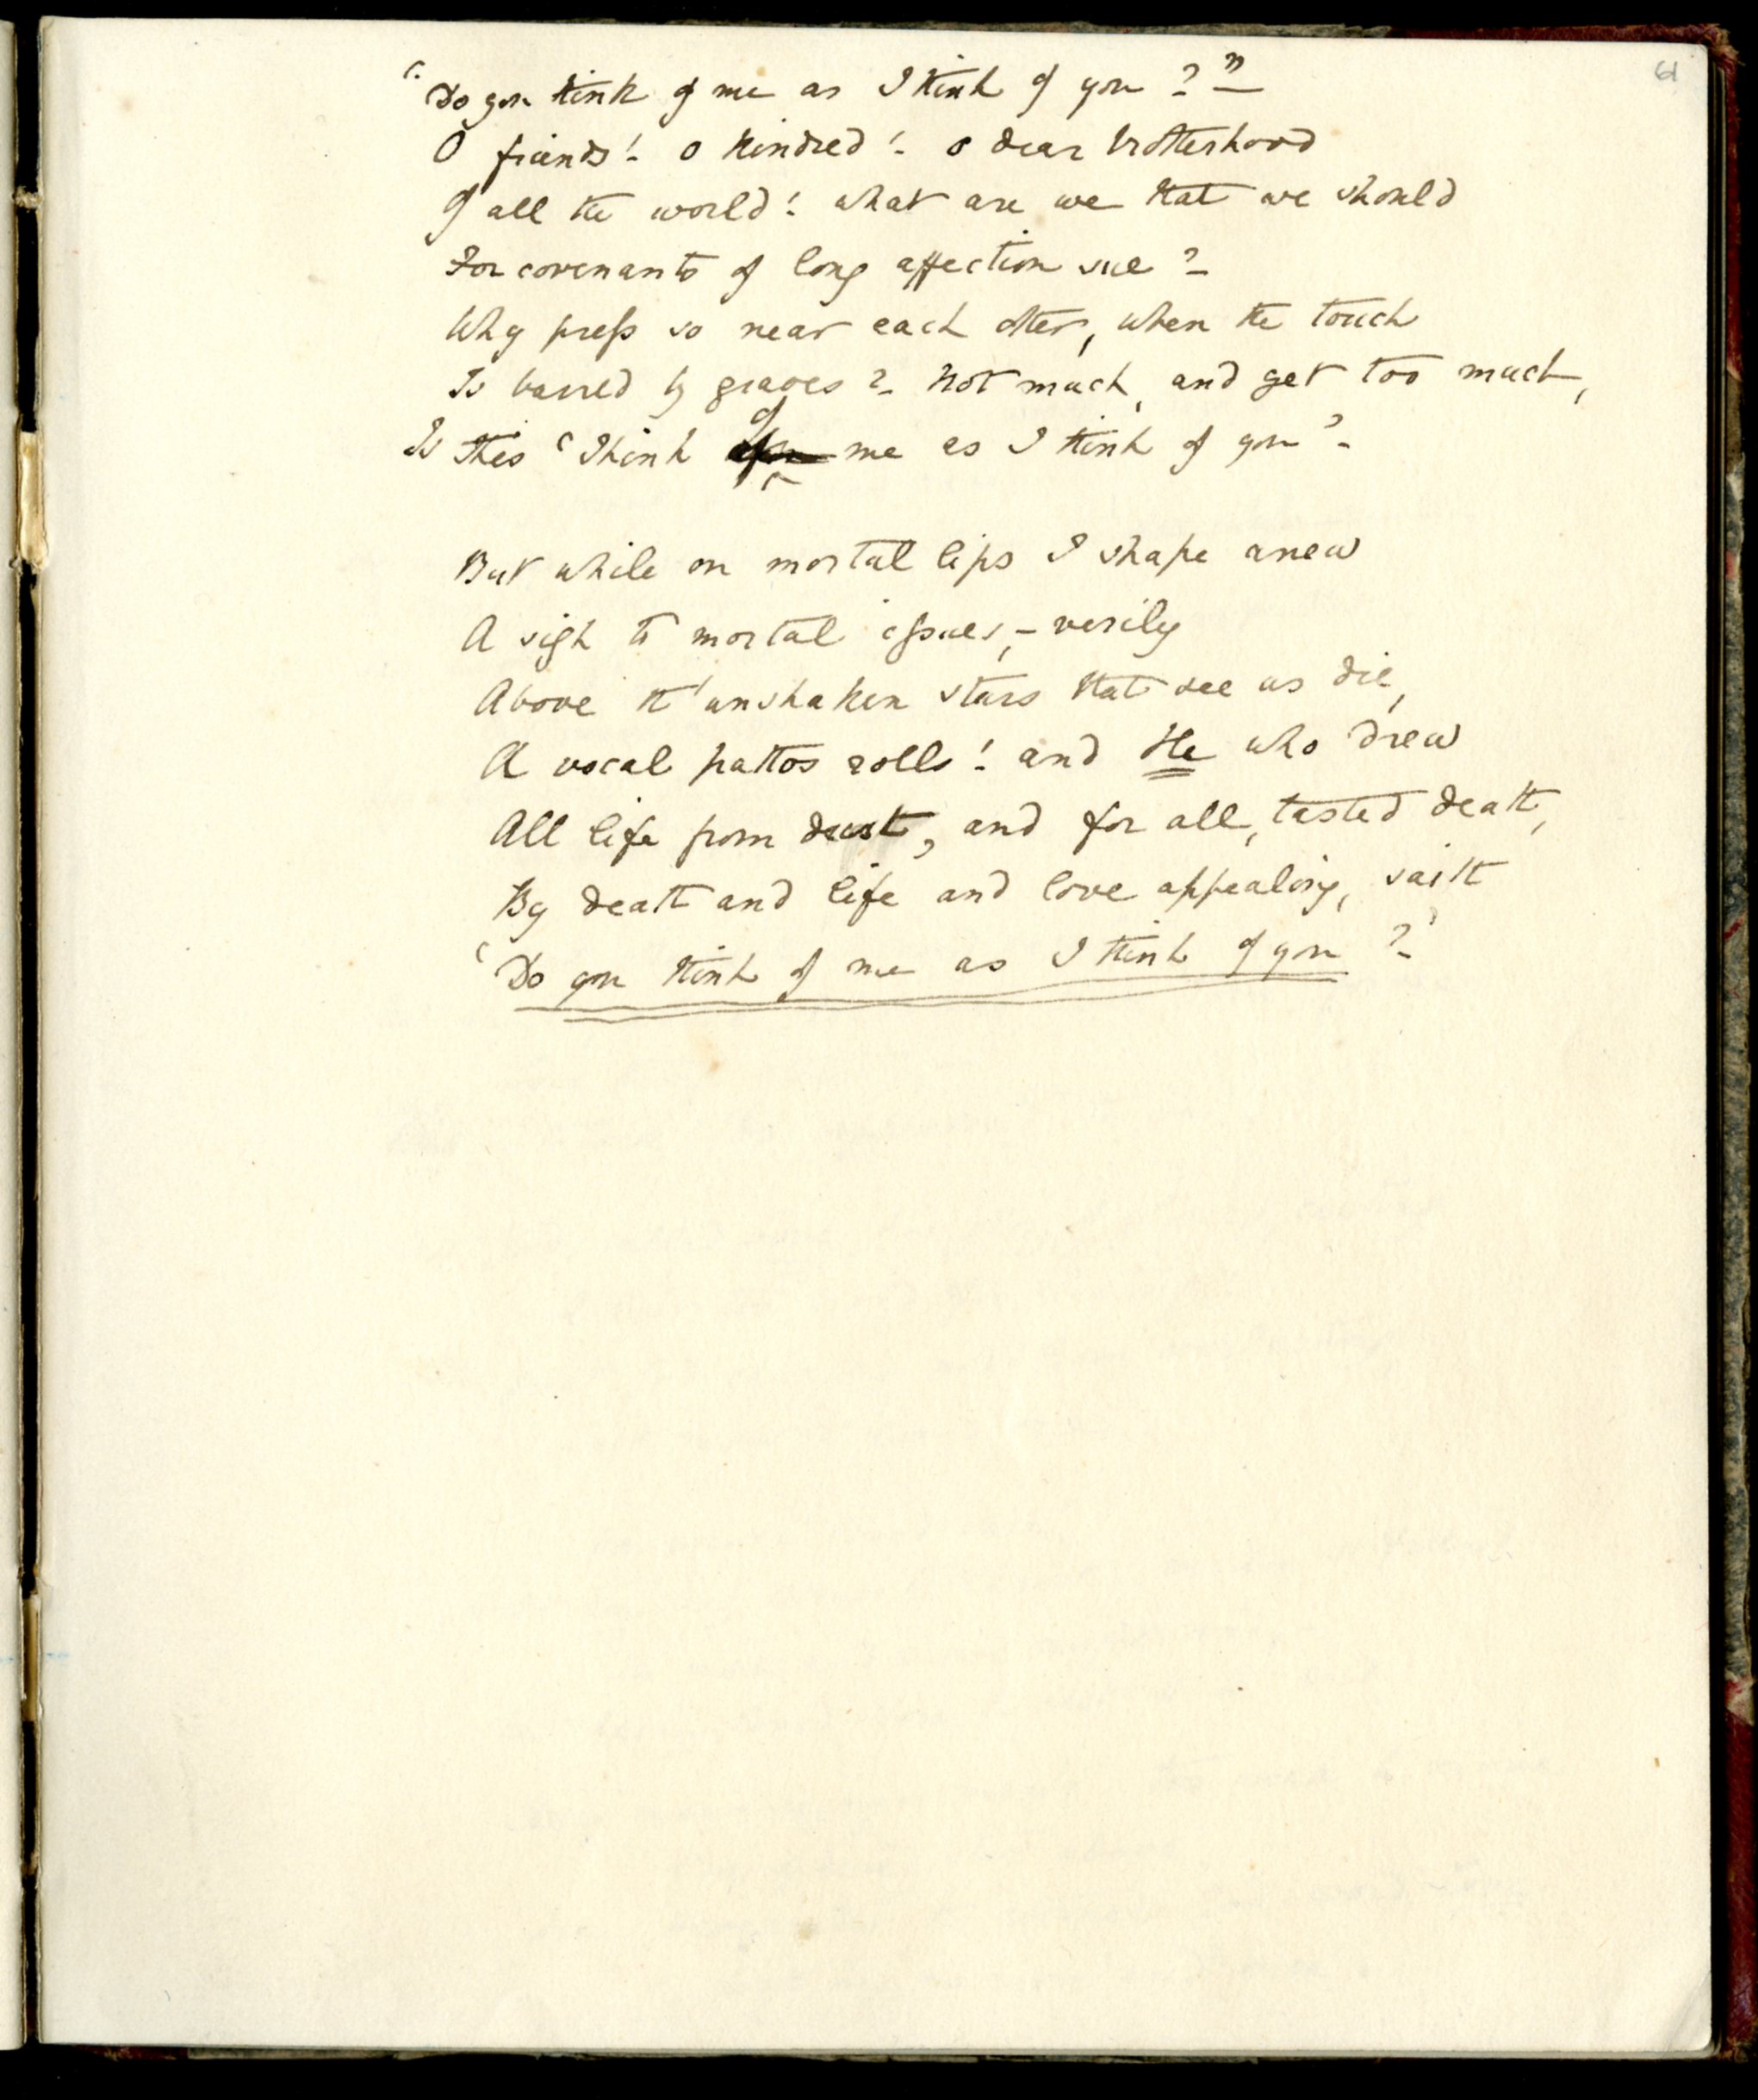 61
"Do you think of me as I think of you?"—
O friends!- O kindred!- O dear brotherhood
Of all the world! what are we that we should
For covenants of long affection sue?-
Why press so near each other, when the touch
Is barred by graves?- Not much, and yet too much,
Is this 'Think of me as I think of you'-
But while on mortal lips I shape anew
A sigh to mortal issues,- verily
Above th' unshaken stars that see us die,
A vocal pathos rolls! and He who drew
All life from dust, and for all, tasted death,
By death and life and love appealing, saith
'Do you think of me as I think of you?-'